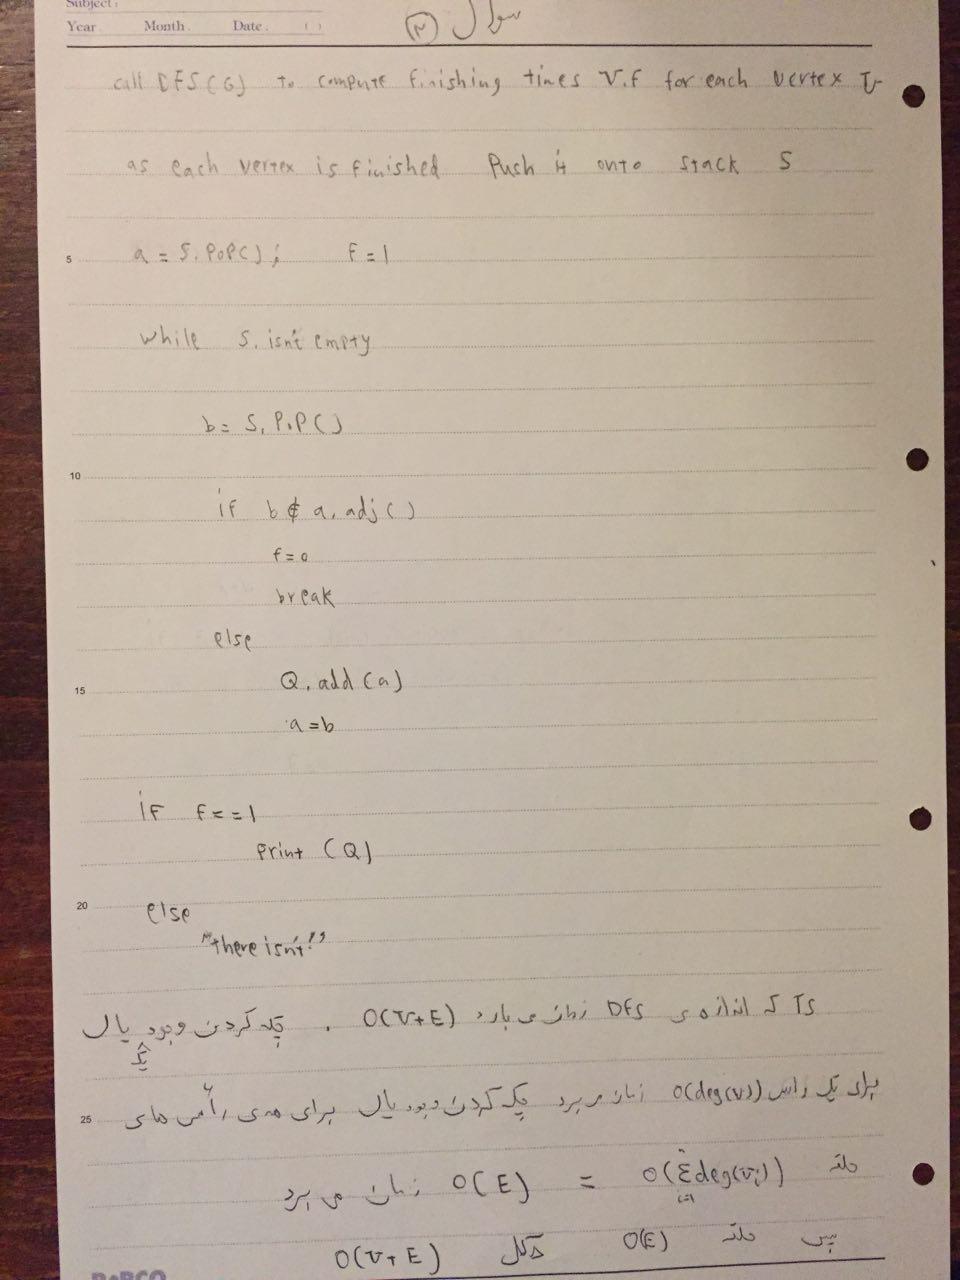 Subject:
Year. Month. Date. ( )
سوال (۳)
call DFS(G) to compute finishing times V.f for each vertex V
as each vertex is finished Push it onto stack S
5
a = S.POP(); f=1
while S. isn't empty
b = S.POP()
10
if b ∉ a.adj()
f=0
break
else
15
Q.add(a)
a=b
if f==1
print (Q)
20
else
"there isn't!"
TS که اندازه ی DFS زمان می بارد O(V+E) . چک کردن وجود یال
یک
برای یک راس O(deg(v)) زمان می برد چک کردن وجود یال برای همه ی رأس های
25
حلقه O(Σdeg(vi)) = O(E) زمان می برد
i=1
پس حلقه O(E) کل O(V+E)